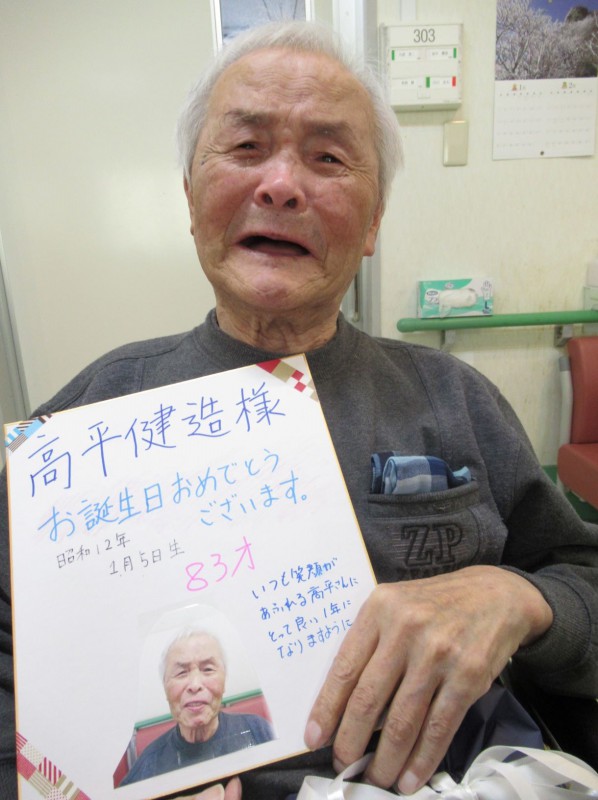 303
高平健造様
お誕生日おめでとう
ございます。
昭和12年
1月5日生
83才
いつも笑顔が
あふれる高平さんに
とって良い1年に
なりますように
ZP